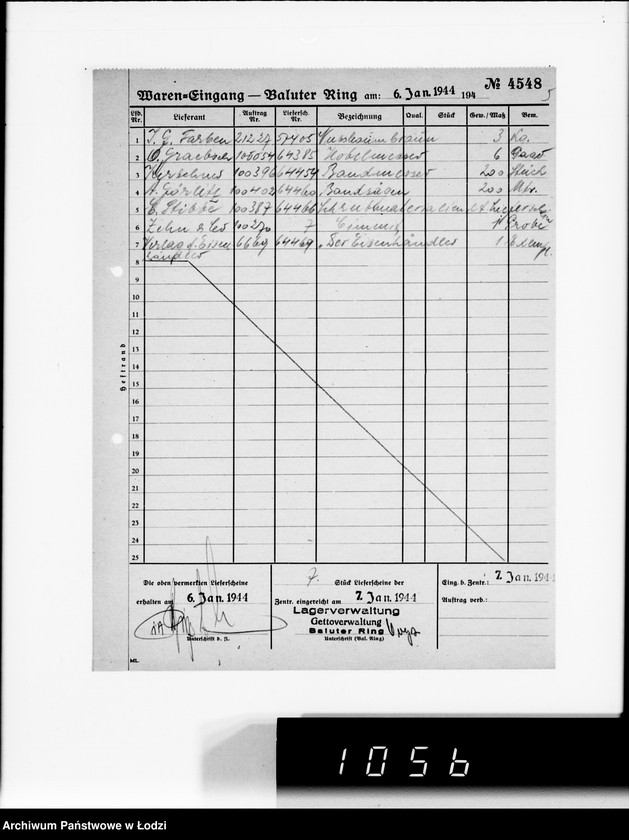 № 4548
Waren-Eingang — Baluter Ring am: 6. Jan. 1944 194
5
Lfd. Nr. Lieferant Auftrag Nr. Liefersch. Nr. Bezeichnung Qual. Stück Gew./Maß Bem.
1 I. G. Farben 21227 57405 Nussbaumbraun 3 Kg.
2 64385 Hobelmesser 6
3 100396 64454 Bandmesser 200 Stück
4 A. Görlitz 100402 64460 Bandsägen 200 Mtr.
5 100387 64466
6 100270 7 1 Probe
7 Verlag d. Eisen 6669 64469 "Der Eisenhändler 1 Exempl.
8 händler
9
10
11
12
13
14
15
16
17
18
19
20
21
22
23
24
25
Heftrand
Die oben vermerkten Lieferscheine
erhalten am 6. Jan. 1944
Unterschrift d. A.
7. Stück Lieferscheine der
Zentr. eingereicht am 7. Jan. 1944
Lagerverwaltung
Gettoverwaltung
Baluter Ring
Unterschrift (Bal. Ring)
Eing. b. Zentr.: 7. Jan. 1944
Auftrag verb.:
ML.
1056
Archiwum Państwowe w Łodzi